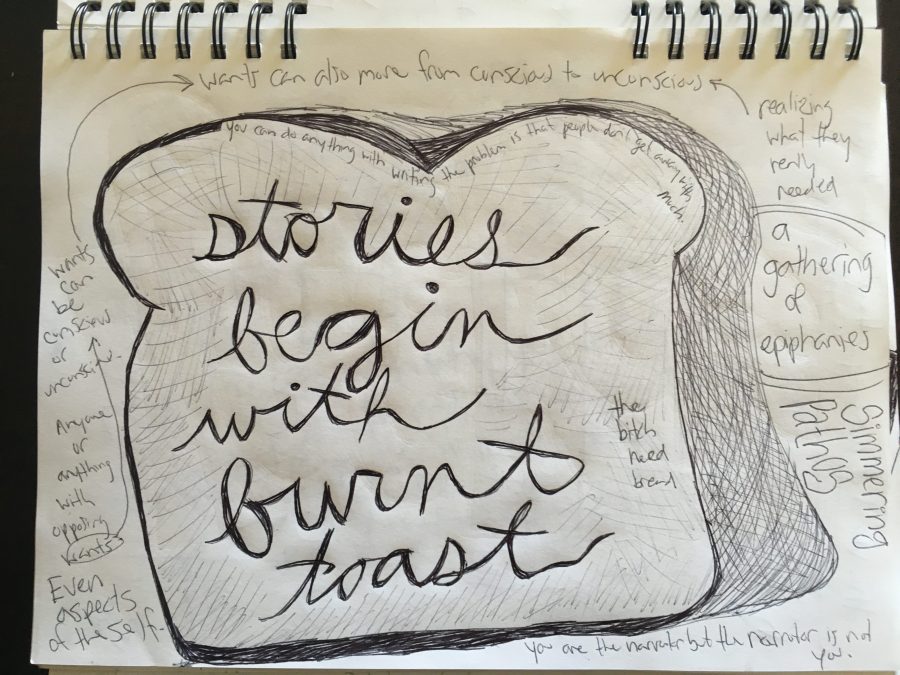 wants can also more from conscious to unconscious
realizing
what they
really
needed
you can do anything with writing the problem is that people don't get away with much.
stories
begin
with
burnt
toast
the
bitch
need
bread
a
gathering
of
epiphanies
Simmering
Pathos
wants
can
be
conscious
or
unconscious.
Anyone
or
anything
with
opposing
wants
Even
aspects
of the self.
you are the narrator but the narrator is not
you.